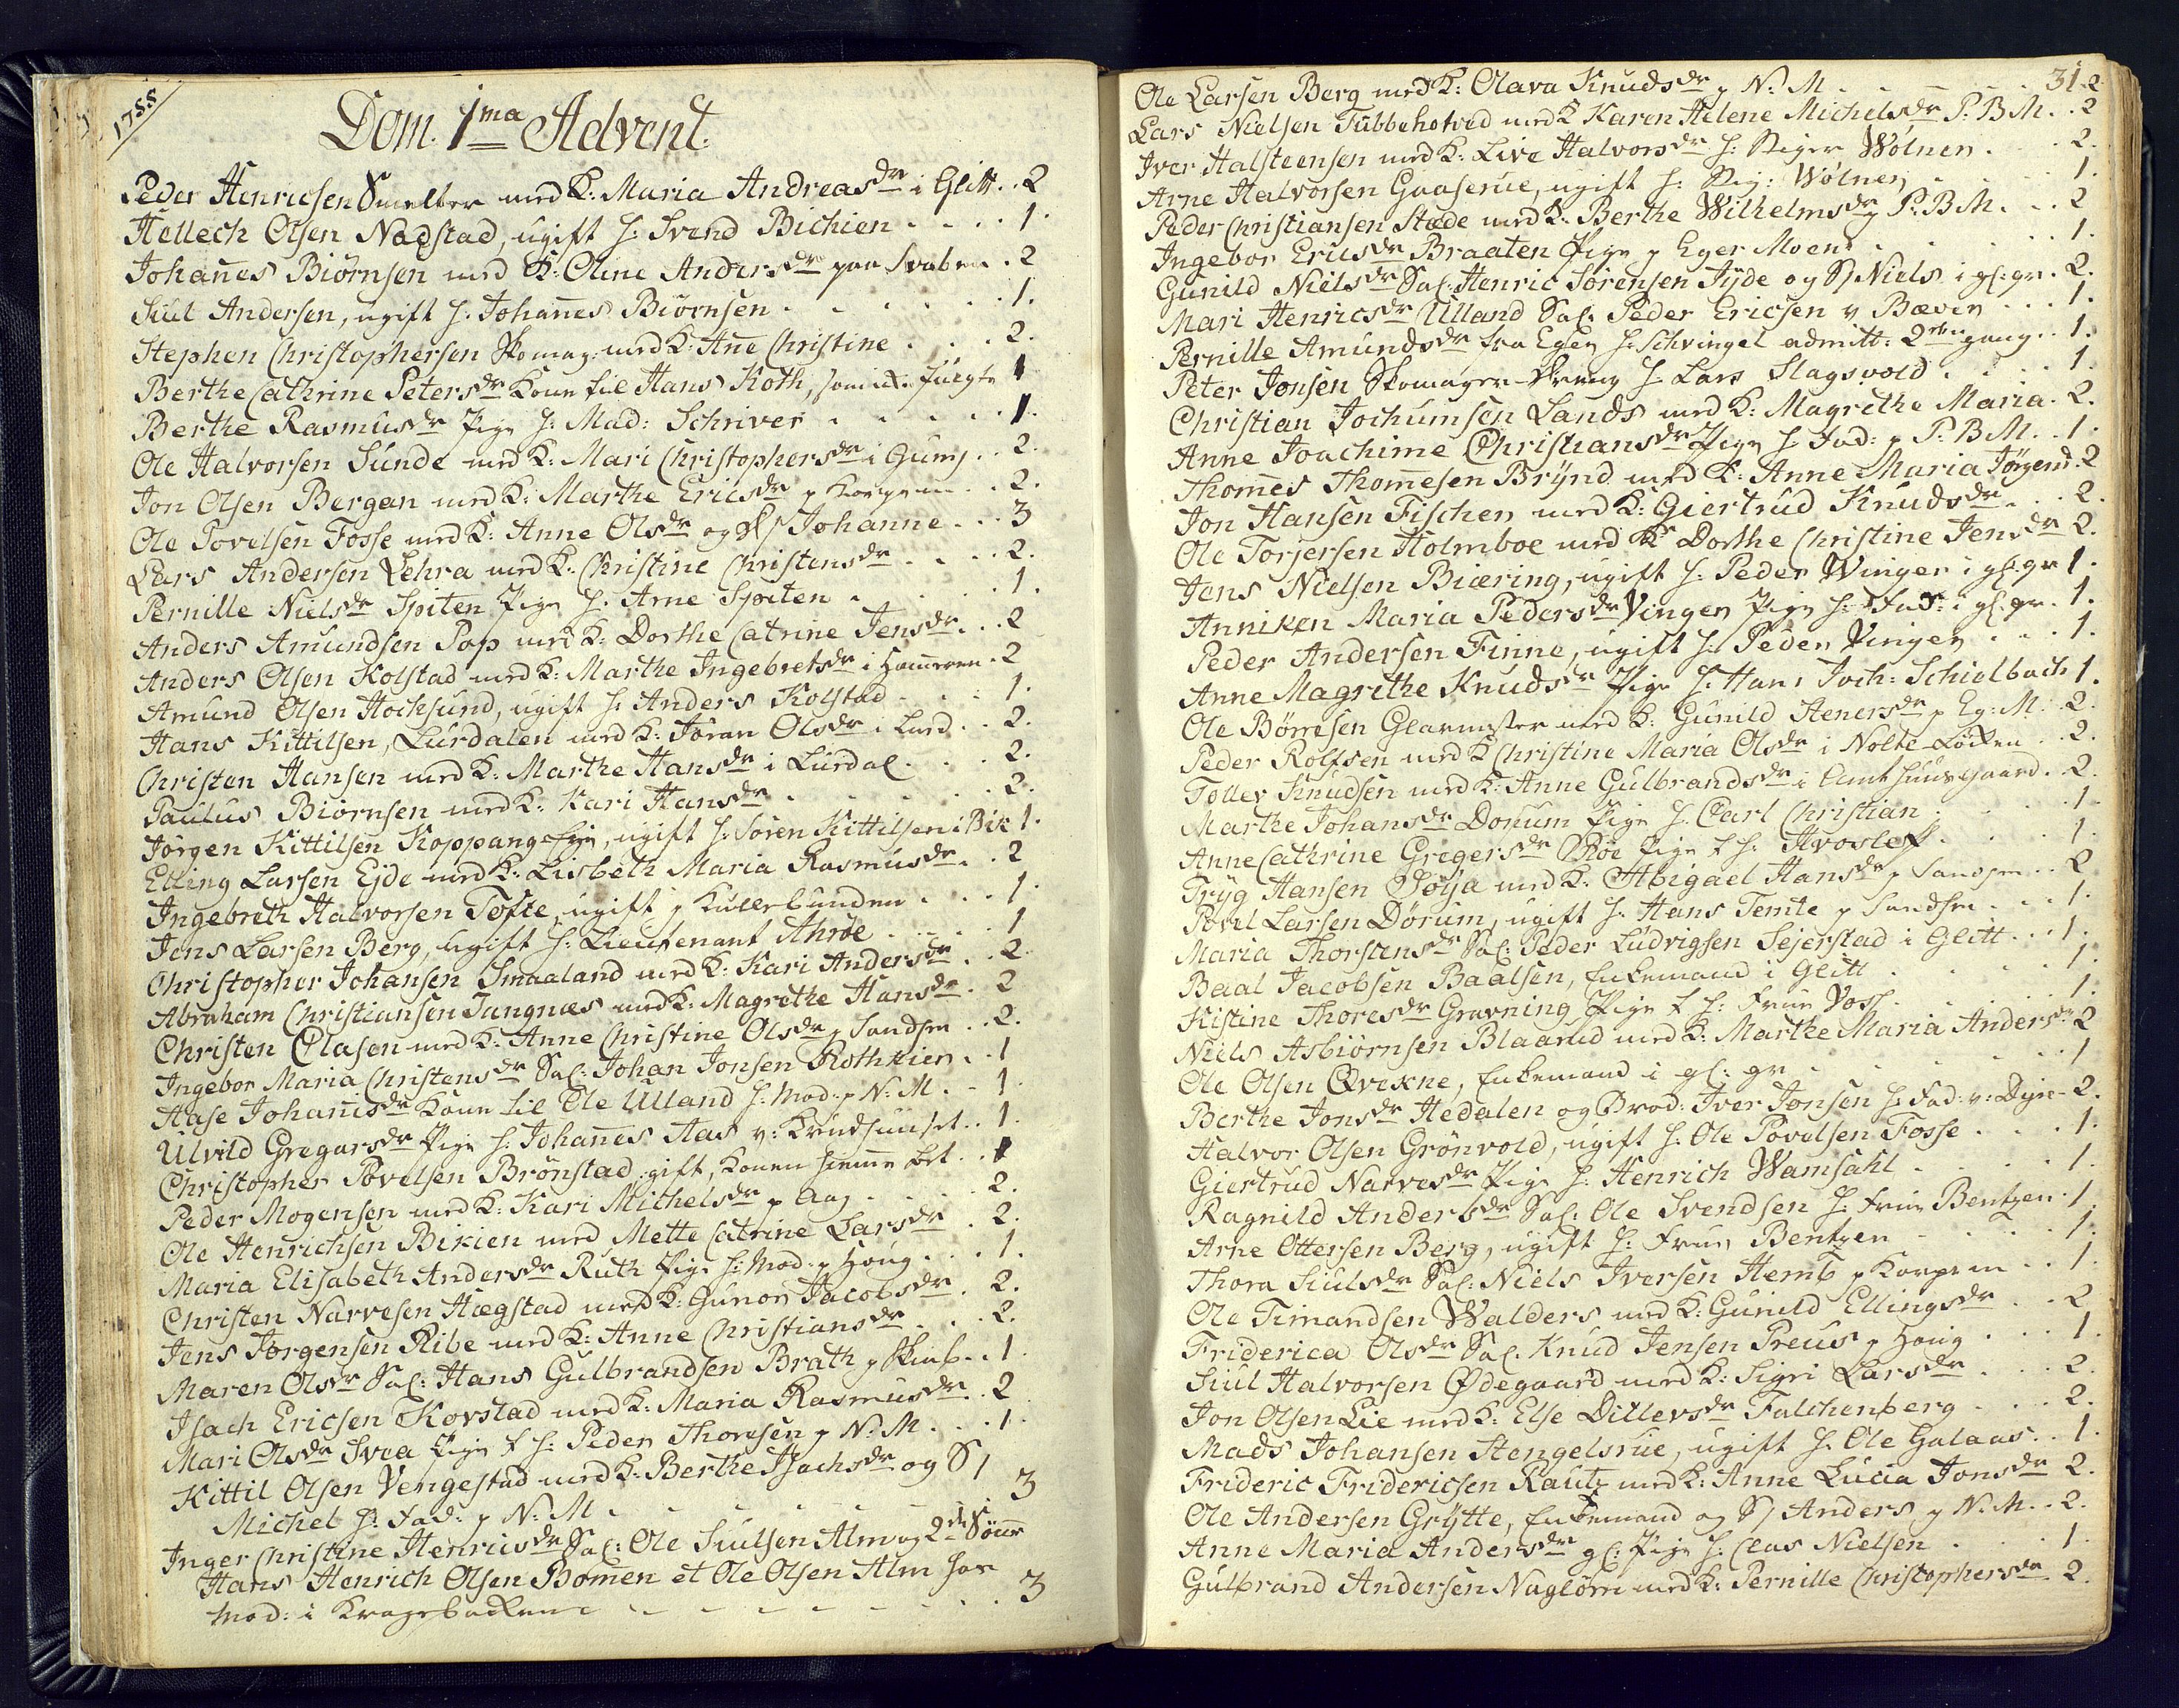 1788
Dom. 1ma Advent.
Peder Henricsen Smelter med K: Maria Andreasdr i Glitt. . 2
Hellech Olsen Nadstad, ugift h: Svend Bichien . . . . 1.
Johañes Biörnsen med K: Oline Andersdr paa Svaben . 2
Siul Andersen, ugift h: Johañes Biörnsen . . . . . . 1.
Stephen Christophersen Skomag: med K: Añe Christine . . . 2.
Berthe Cathrine Petersdr Kone til Hans Koth, som 1
Berthe Rasmusdr Pige h: Mad: Schriver . . . . . . 1.
Ole Halvorsen Sunde med K: Mari Christophersdr i Gump . . 2.
Jon Olsen Bergan med K: Marthe Ericsdr p Korpem . . 2.
Ole Povelsen Fosse med K: Anne Olsdr og D/ Johanne . . . 3
Lars Andersen Lehra med K: Christine Christensdr . . . . 2.
Pernille Nielsdr Spiten Pige h: Arne Spiten . . . . . 1.
Anders Amundsen Pap med K: Dorthe Catrine Jensdr . . . 2
Anders Olsen Kolstad med K: Marthe Ingebretsdr i Hameren . 2
Amund Olsen Hochsund, ugift h: Anders Kolstad . . . . 1.
Hans Kittilsen, Lurdalen med K: Jöran Olsdr i Lurd. . . 2.
Christen Hansen med K: Marthe Hansdr i Lurdal . . . . 2.
Paulus Biörnsen med K: Kari Hansdr . . . . . . . 2.
Jörgen Kittilsen Koppangeje, ugift h: Sören Kittilsen i Bik 1.
Elling Larsen Ejde med K: Lisbeth Maria Rasmusdr . . 2
Ingebreth Halvorsen Tofte, ugift p Kullebunden . . . 1.
Jens Larsen Berg, ugift h: Lieutenant Ahröe . . . . 1
Christopher Johansen Smaaland med K: Kari Andersdr . . 2
Abraham Christiansen Tangnæs med K: Magrethe Hansdr . 2
Christen Olasen med K: Anne Christine Olsdr p Sandsen . . 2.
Ingebor Maria Christensdr Sal: Johan Jonsen Rothkier . . 1
Aase Johañisdr Kone til Ole Ulland h: Mod: p N: M. . . 1.
Ulvild Gregarsdr Pige h: Johañes Aas v: Krudhuuset . . 1.
Christopher Povelsen Brönstad, gift, Konen hieme bet . . 1
Peder Mogensen med K: Kari Michelsdr p Aag . . . . 2.
Ole Henrichsen Bikien med Mette Catrine Larsdr . 2.
Maria Elisabeth Andersdr Ruth Pige h: Mod: p Houg . . . 1.
Christen Narvesen Hægstad med K: Gunor Jacobsdr . 2.
Jens Jörgensen Ribe med K: Anne Christiansdr . . . 2.
Maren Olsdr Sal: Hans Gulbrandsen Brath p Skinb. . . 1
Isach Ericsen Korstad med K: Maria Rasmusdr . . 2
Mari Olsdr Svea Pige t h: Peder Thoresen p N: M. . . 1.
Kittil Olsen Vengestad med K: Berthe Isachsdr og S/
Michel h: Fad: p N: M . . . . . . . 3
Inger Christine Henricsdr Sal: Ole Siulsen Alm og 2de Sönr
Hans Henrich Olsen Bomen et Ole Olsen Alm hos
Mod: i Kragebacken . . . . . . . . 3
31.
Ole Larsen Berg med K: Olava Knudsdr p N: M . . . . . 2
Lars Nielsen Tubbehotved med K Karen Helene Michelsdr P: B M. . 2
Iver Halsteensen med K: Live Halvorsdr h: Stiger Wölner . . . 2.
Arne Halvorsen Gaaserue, ugift h: Stig: Wölner . . . . 1.
Peder Christiansen Stæde med K: Berthe Wilhelmsdr p P: B M. . . 2
Ingebor Ericsdr Braaten Pige p Eger Moen . . . . . 1.
Gunild Nielsdr Sal: Henric Sörensen Ijde og S/ Niels i gl: gr. 2.
Mari Henricsdr Ulland Sal: Peder Ericsen v Bæver . . . 1.
Pernille Amundsdr fra Egen h: Schvingel admitt: 2den gang . . 1.
Peter Jonsen Skomager Dreng h: Lars Slagsvold . . . . 1.
Christian Jochumsen Lands med K: Magrethe Maria . 2.
Anne Joachime Christiansdr Pige h: Fad: p P: B M. . . 1.
Thomes Thomesen Brÿnd med K: Anne Maria Jörgend. 2
Jon Hansen Fischer med K: Giertrud Knudsdr . . . 2.
Ole Torjersen Holmboe med K Dorthe Christine Jensdr 2.
Jens Nielsen Biæring, ugift h: Peder Winger i gl: gr 1.
Anniken Maria Pedersdr Vinger Pige h: Fad: i gl: gr. 1.
Peder Andersen Finne, ugift h: Peder Vinger . . . 1.
Anne Magrethe Knudsdr Pige h: Hans Joch: Schielbach 1.
Ole Börresen Glarmester med K: Gunild Aenersdr p Eg: M. 2.
Peder Rolfsen med K Christine Maria Olsdr i Nolte-Löcken . 2.
Toller Knudsen med K: Anne Gulbrandsdr i Amthuusgaard . 2.
Marthe Johansdr Dorum Pige h: Carl Christian . . . . 1.
Anne Cathrine Gregersdr Röe Pige t h: Hvoslef . . . 1.
Trÿg Hansen Döÿa med K: Abigael Hansdr p Sandsen . . 2
Povel Larsen Dörum, ugift h: Hans Temte p Sandsen . . . 1.
Maria Thorstensdr Sal: Peder Ludvigsen Sejerstad i Glitt . . . 1.
Baal Jacobsen Baalsen, Enkemand i Glitt . . . . . 1.
Kistine Thoresdr Gravning Pige t h: Frue Voss . . . . 1.
Niels Asbiörnsen Blaarud med K: Marthe Maria Andersdr 2
Ole Olsen Qvekne, Enkemand i gl: gr . . . . . . 1
Berthe Jonsdr Hedalen og Brod: Iver Jonsen h: Fad: v: Dyre . 2.
Halvor Olsen Grönvold, ugift h: Ole Povelsen Fosse . . . 1.
Giertrud Narvesdr Pige h: Henrich Wamsahl . . . . . 1.
Ragnild Andersdr Sal: Ole Svendsen h: Frue Bentzen . 1.
Arne Ottersen Berg, ugift h: Frue Bentzen . . . . 1.
Thora Siulsdr Sal: Niels Iversen Hemb p Korpem . . 1.
Ole Timandsen Walders med K: Gunild Ellingsdr . . . 2
Friderica Olsdr Sal: Knud Jensen Preus p Houg . . . 1.
Siul Halvorsen Ødegaard med K: Sigri Larsdr . . . . 2.
Jon Olsen Lie med K: Else Dillevsdr Falchenberg . . . 2.
Mads Johansen Stengelsrue, ugift h: Ole Galaas . . 1.
Frideric Fridericsen Rautz med K: Anne Lucia Jonsdr 2.
Ole Andersen Grÿtte, Enkemand og S/ Anders p N: M. . 2.
Anne Maria Andersdr gl: Pige h: Clas Nielsen . . . 1.
Gulbrand Andersen Naglörre med K: Pernille Christophersdr 2.